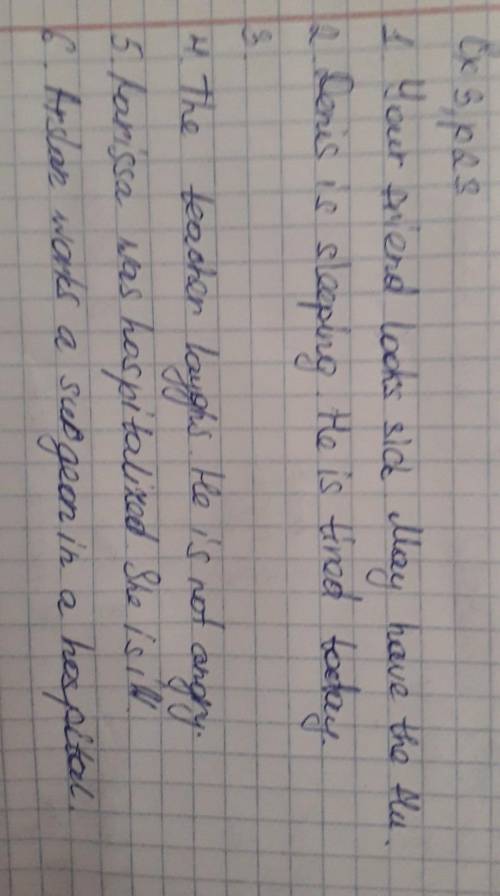 Ex 3, p 23
1. Your friend looks sick. May have the flu.
2. Denis is sleeping. He is tired today.
3.
4. The teacher laughs. He is not angry.
5. Larissa was hospitalized. She is ill.
6. Arslan works a surgeon in a hospital.